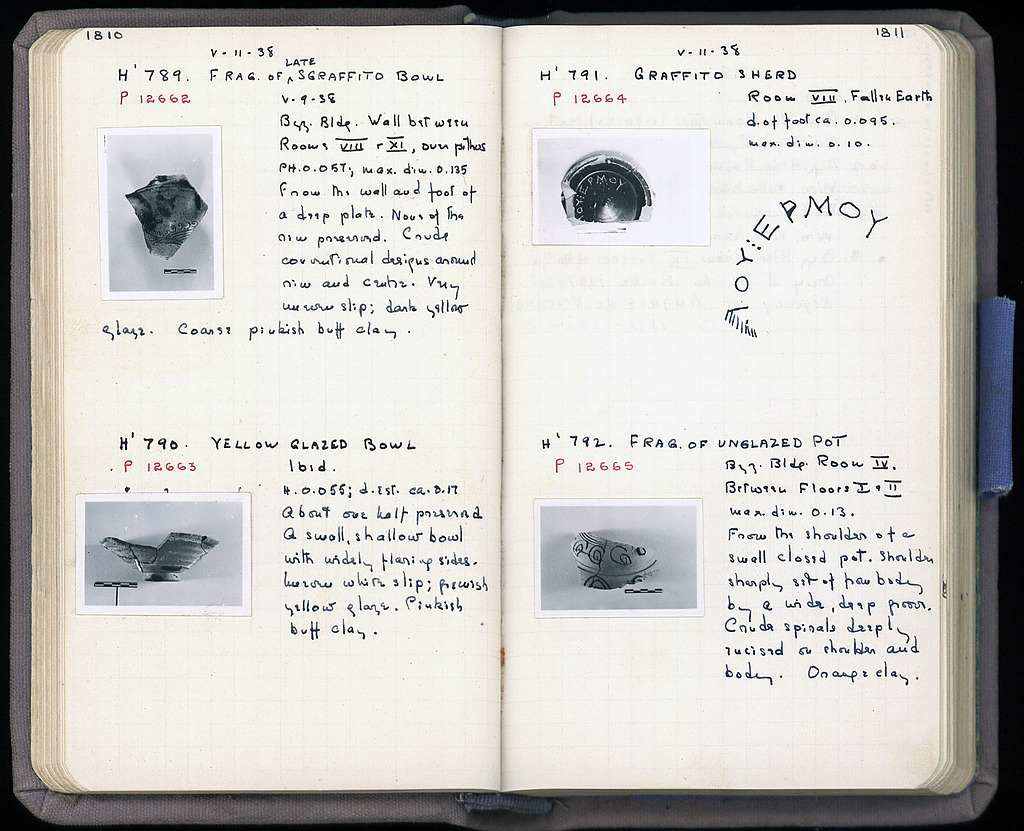 1810
V-11-38
LATE
H' 789. FRAG. OF ^ SGRAFFITO BOWL
P 12662
V-9-38
Byz. Bldg. Wall between
Rooms VIII + XI, over pithos
PH. 0.057; max. dim. 0.135
From the wall and foot of
a deep plate. None of the
rim preserved. Crude
conventional designs around
rim and centre. Very
uneven slip; dark yellow
glaze. Coarse pinkish buff clay.
H' 790. YELLOW GLAZED BOWL
P 12663
Ibid.
H. 0.055; d. est. ca. 0.17
About one half preserved
A small, shallow bowl
with widely flaring sides.
Uneven white slip; greenish
yellow glaze. Pinkish
buff clay.
1811
V-11-38
H' 791. GRAFFITO SHERD
P 12664
Room VIII. Fallen Earth
d. of foot ca. 0.095.
max. dim. 0.10.
ΤΟΥ:ΕΡΜΟΥ
ΟΥ:ΕΡΜΟΥ
H' 792. FRAG. OF UNGLAZED POT
P 12665
Byz. Bldg. Room IV.
Between Floors I + II
max. dim. 0.13.
From the shoulder of a
small closed pot. Shoulder
sharply set off from body
by a wide, deep groove.
Crude spirals deeply
incised on shoulder and
body. Orange clay.